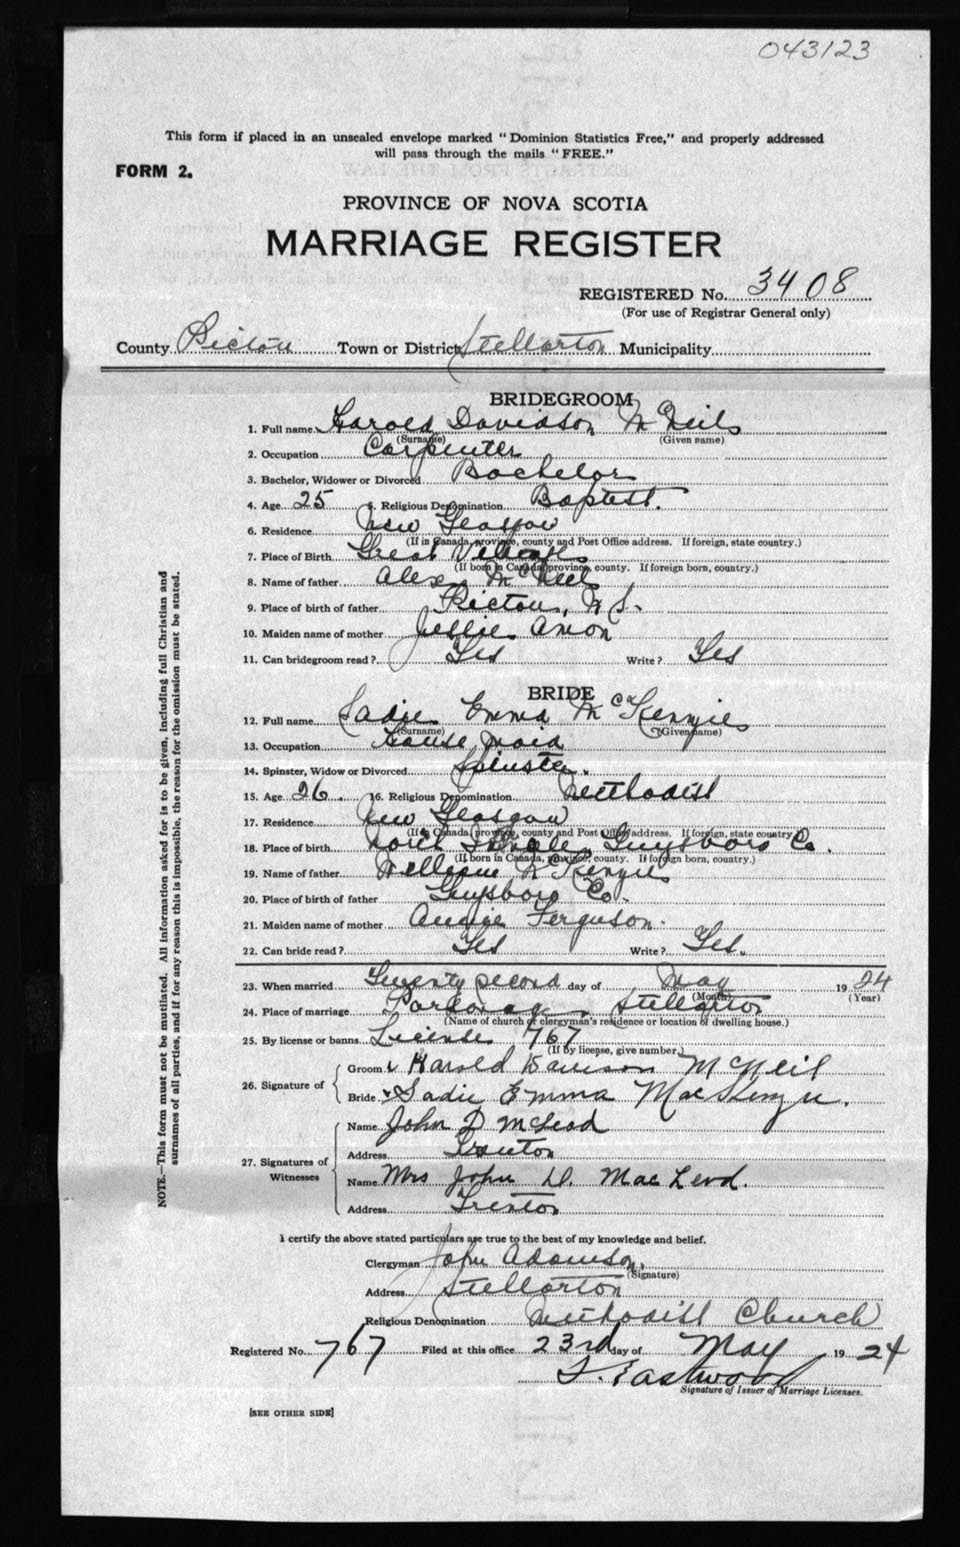 043123
This form if placed in an unsealed envelope marked "Dominion Statistics Free," and properly addressed
will pass through the mails "FREE."
FORM 2.
PROVINCE OF NOVA SCOTIA
MARRIAGE REGISTER
REGISTERED No. 3408
(For use of Registrar General only)
County Pictou Town or District Stellarton Municipality
BRIDEGROOM
1. Full name Harold Davidson McNeil
(Surname) (Given name)
2. Occupation Carpenter
3. Bachelor, Widower or Divorced Bachelor
4. Age 25 5. Religious Denomination Baptist.
6. Residence New Glasgow
(If in Canada, province, county and Post Office address. If foreign, state country.)
7. Place of Birth Great Village
(If born in Canada, province, county. If foreign born, country.)
8. Name of father Alex McNeil
9. Place of birth of father Pictou, N.S.
10. Maiden name of mother Jessie
11. Can bridegroom read? Yes Write? Yes
BRIDE
12. Full name Sadie Emma McKenzie
(Surname) (Given name)
13. Occupation House Maid
14. Spinster, Widow or Divorced Spinster.
15. Age 26. 16. Religious Denomination Methodist
17. Residence New Glasgow
(If in Canada, province, county and Post Office address. If foreign, state country.)
18. Place of birth North Guysboro Co.
(If born in Canada, province, county. If foreign born, country.)
19. Name of father William McKenzie
20. Place of birth of father Guysboro Co.
21. Maiden name of mother Annie Ferguson.
22. Can bride read? Yes Write? Yes.
23. When married Twenty second day of May 1924
(Month) (Year)
24. Place of marriage Parsonage Stellarton
(Name of church or clergyman's residence or location of dwelling house.)
25. By license or banns License 767
(If by license, give number.)
26. Signature of
Groom Harold Davison McNeil
Bride Sadie Emma MacKenzie.
27. Signatures of Witnesses
Name John D McLeod
Address Trenton
Name Mrs John D. MacLeod.
Address Trenton
I certify the above stated particulars are true to the best of my knowledge and belief.
Clergyman John Adamson.
(Signature)
Address Stellarton
Religious Denomination Methodist Church
Registered No. 767 Filed at this office 23rd day of May 1924
Eastwood
Signature of Issuer of Marriage Licenses.
[SEE OTHER SIDE]
NOTE.—This form must not be mutilated. All information asked for is to be given, including full Christian and
surnames of all parties, and if for any reason this is impossible, the reason for the omission must be stated.